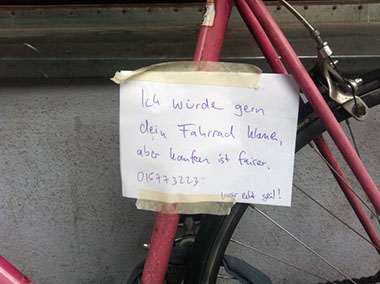 Ich würde gern
dein Fahrrad klauen,
aber kaufen ist fairer.
016773223-
wär echt geil!